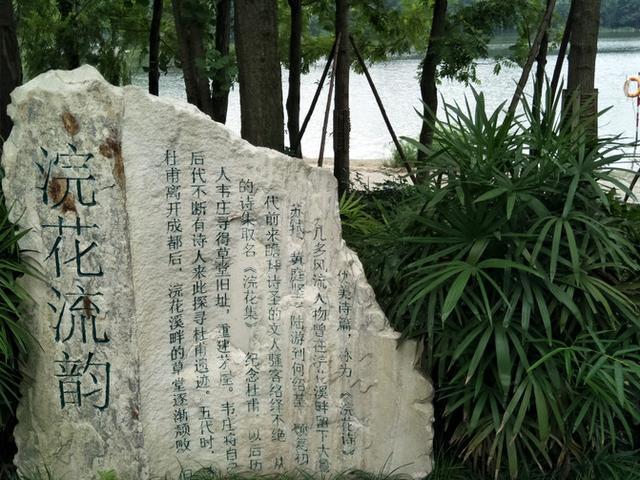 浣花流韵
杜甫离开成都后，浣花溪畔的草堂逐渐颓败 但
后代不断有诗人来此探寻杜甫遗迹。五代时，
人韦庄寻得草堂旧址，重建茅屋。韦庄将自己
的诗集取名《浣花集》 纪念杜甫 以后历
代前来瞻拜诗圣的文人骚客络绎不绝 从
苏轼、黄庭坚、陆游到何绍基
几多风流人物曾在浣花溪畔留下大量
优美诗篇，称为《浣花诗》